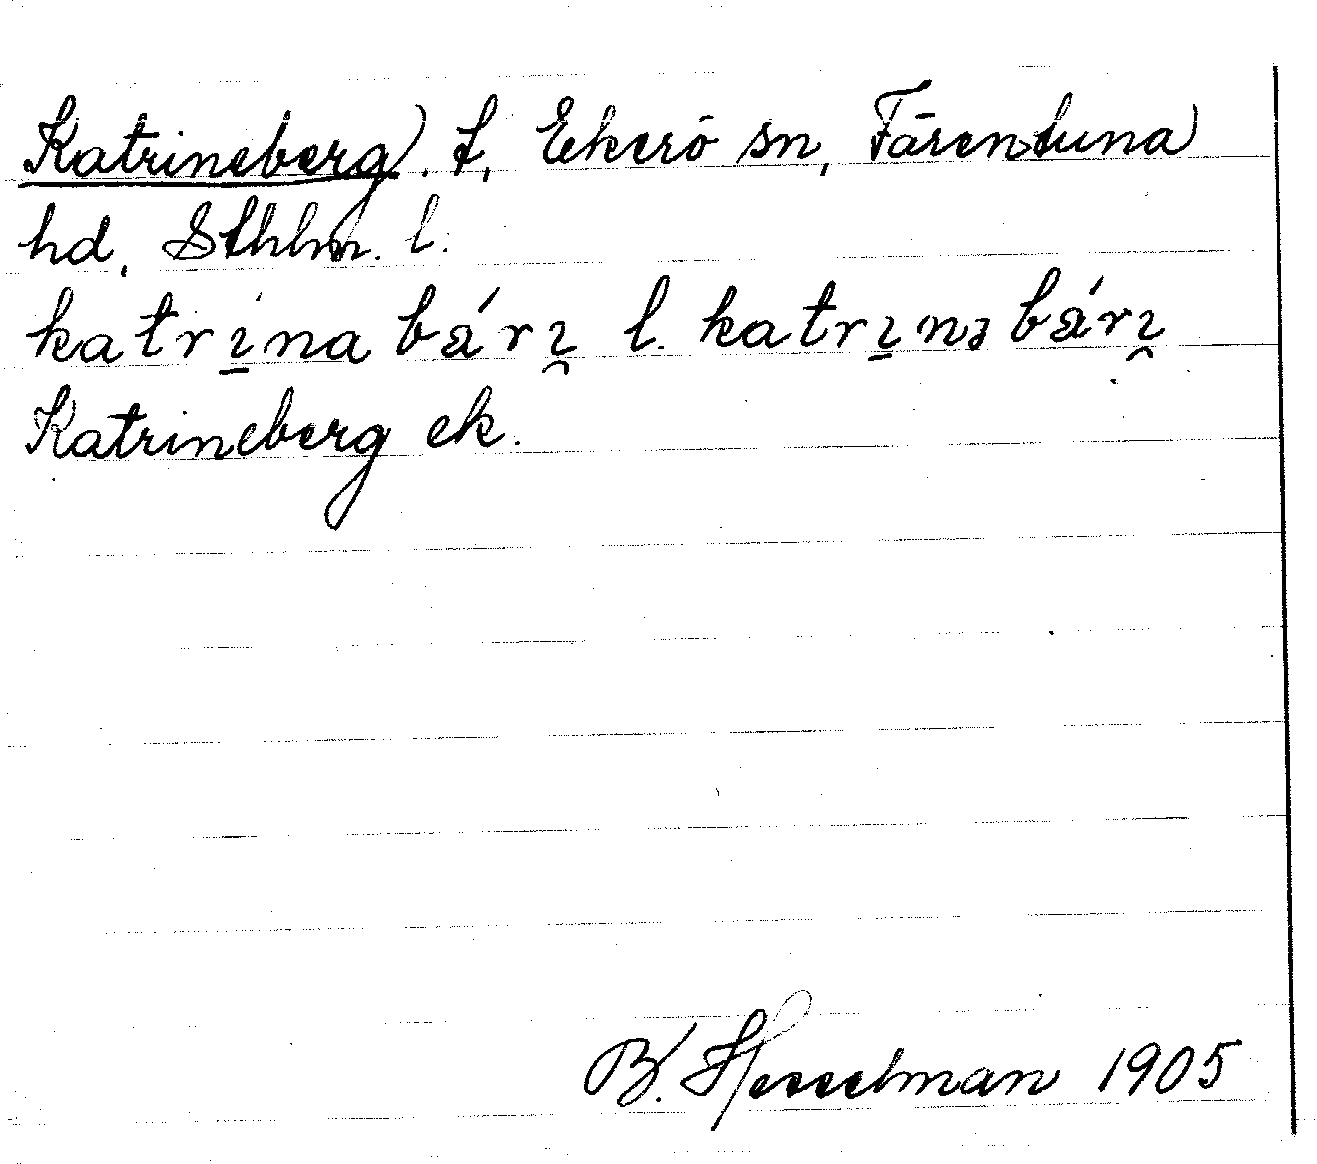 Katrineberg. t, Ekerö sn, Färentuna
hd, Sthlm. l.
katrı̱na bárı̯ l. katrı̱nə bárı̯
Katrineberg ek.
B. Hesselman 1905